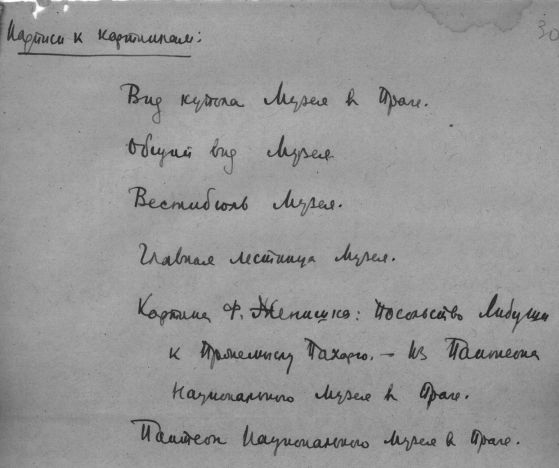 Надписи к картинкам:
30
Вид купола Музея в Праге.
Общий вид Музея
Вестибюль Музея.
Главная лестница Музея.
Картина Ф. Женишка: Посольство Либуши
к Пржемыслу Пахарю. – Из Пантеона
Национального Музея в Праге.
Пантеон Национального Музея в Праге.